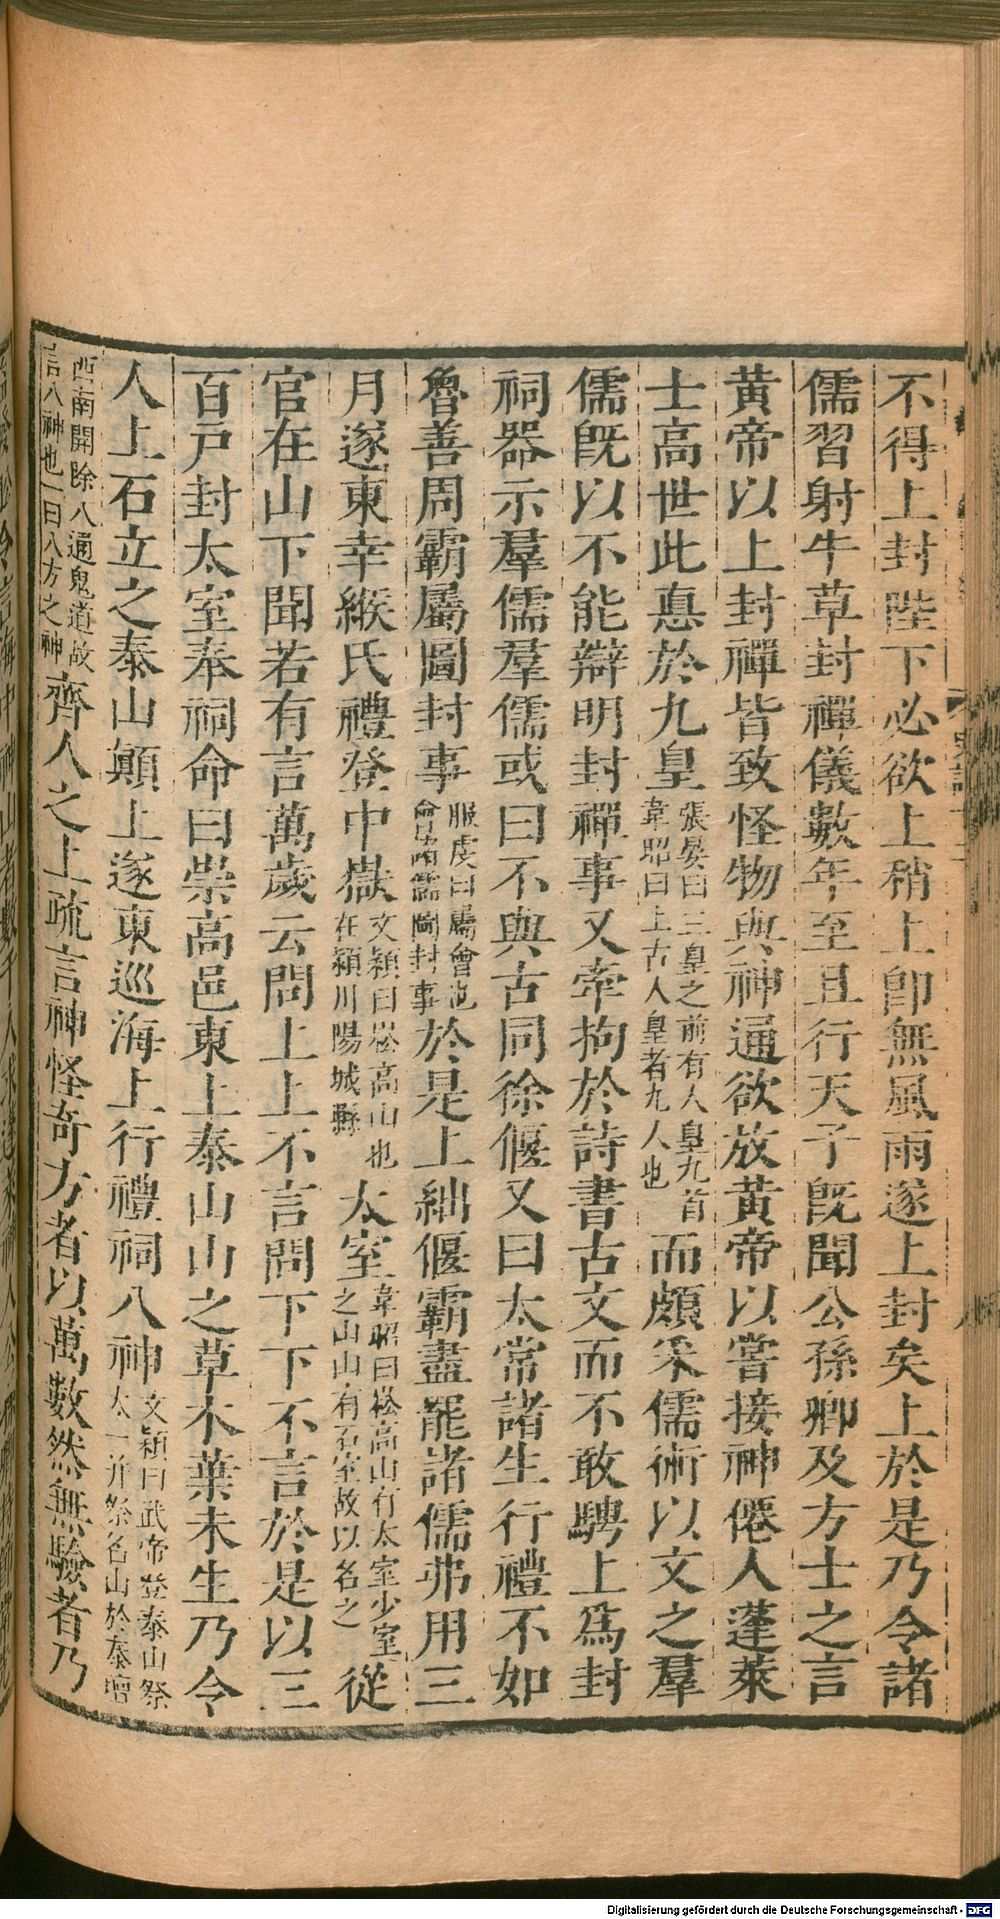 不得上封陛下必欲上稍上卽無風雨遂上封矣上於是乃令諸
儒習射牛草封禪儀數年至且行天子旣聞公孫卿及方士之言
黃帝以上封禪皆致怪物與神通欲放黃帝以嘗接神僊人蓬萊
士高世比悳於九皇張晏曰三皇之前有人皇九首韋昭曰上古人皇者九人也而頗采儒術以文之羣
儒旣以不能辯明封禪事又牽拘於詩書古文而不敢騁上爲封
祠器示羣儒羣儒或曰不與古同徐偃又曰太常諸生行禮不如
魯善周霸屬圖封事服虔曰屬會也會諸儒圖封事於是上絀偃霸盡罷諸儒弗用三
月遂東幸緱氏禮登中嶽文穎曰崧高山也在潁川陽城縣太室韋昭曰崧高山有太室少室之山山有石室故以名之從
官在山下聞若有言萬歲云問上上不言問下下不言於是以三
百戶封太室奉祠命曰崇高邑東上泰山山之草木葉未生乃令
人上石立之泰山顚上遂東巡海上行禮祠八神文穎曰武帝登泰山祭太一并祭名山於泰壇
西南開除八通鬼道故言八神也一曰八方之神齊人之上疏言神怪奇方者以萬數然無驗者乃
Digitalisierung gefördert durch die Deutsche Forschungsgemeinschaft - DFG